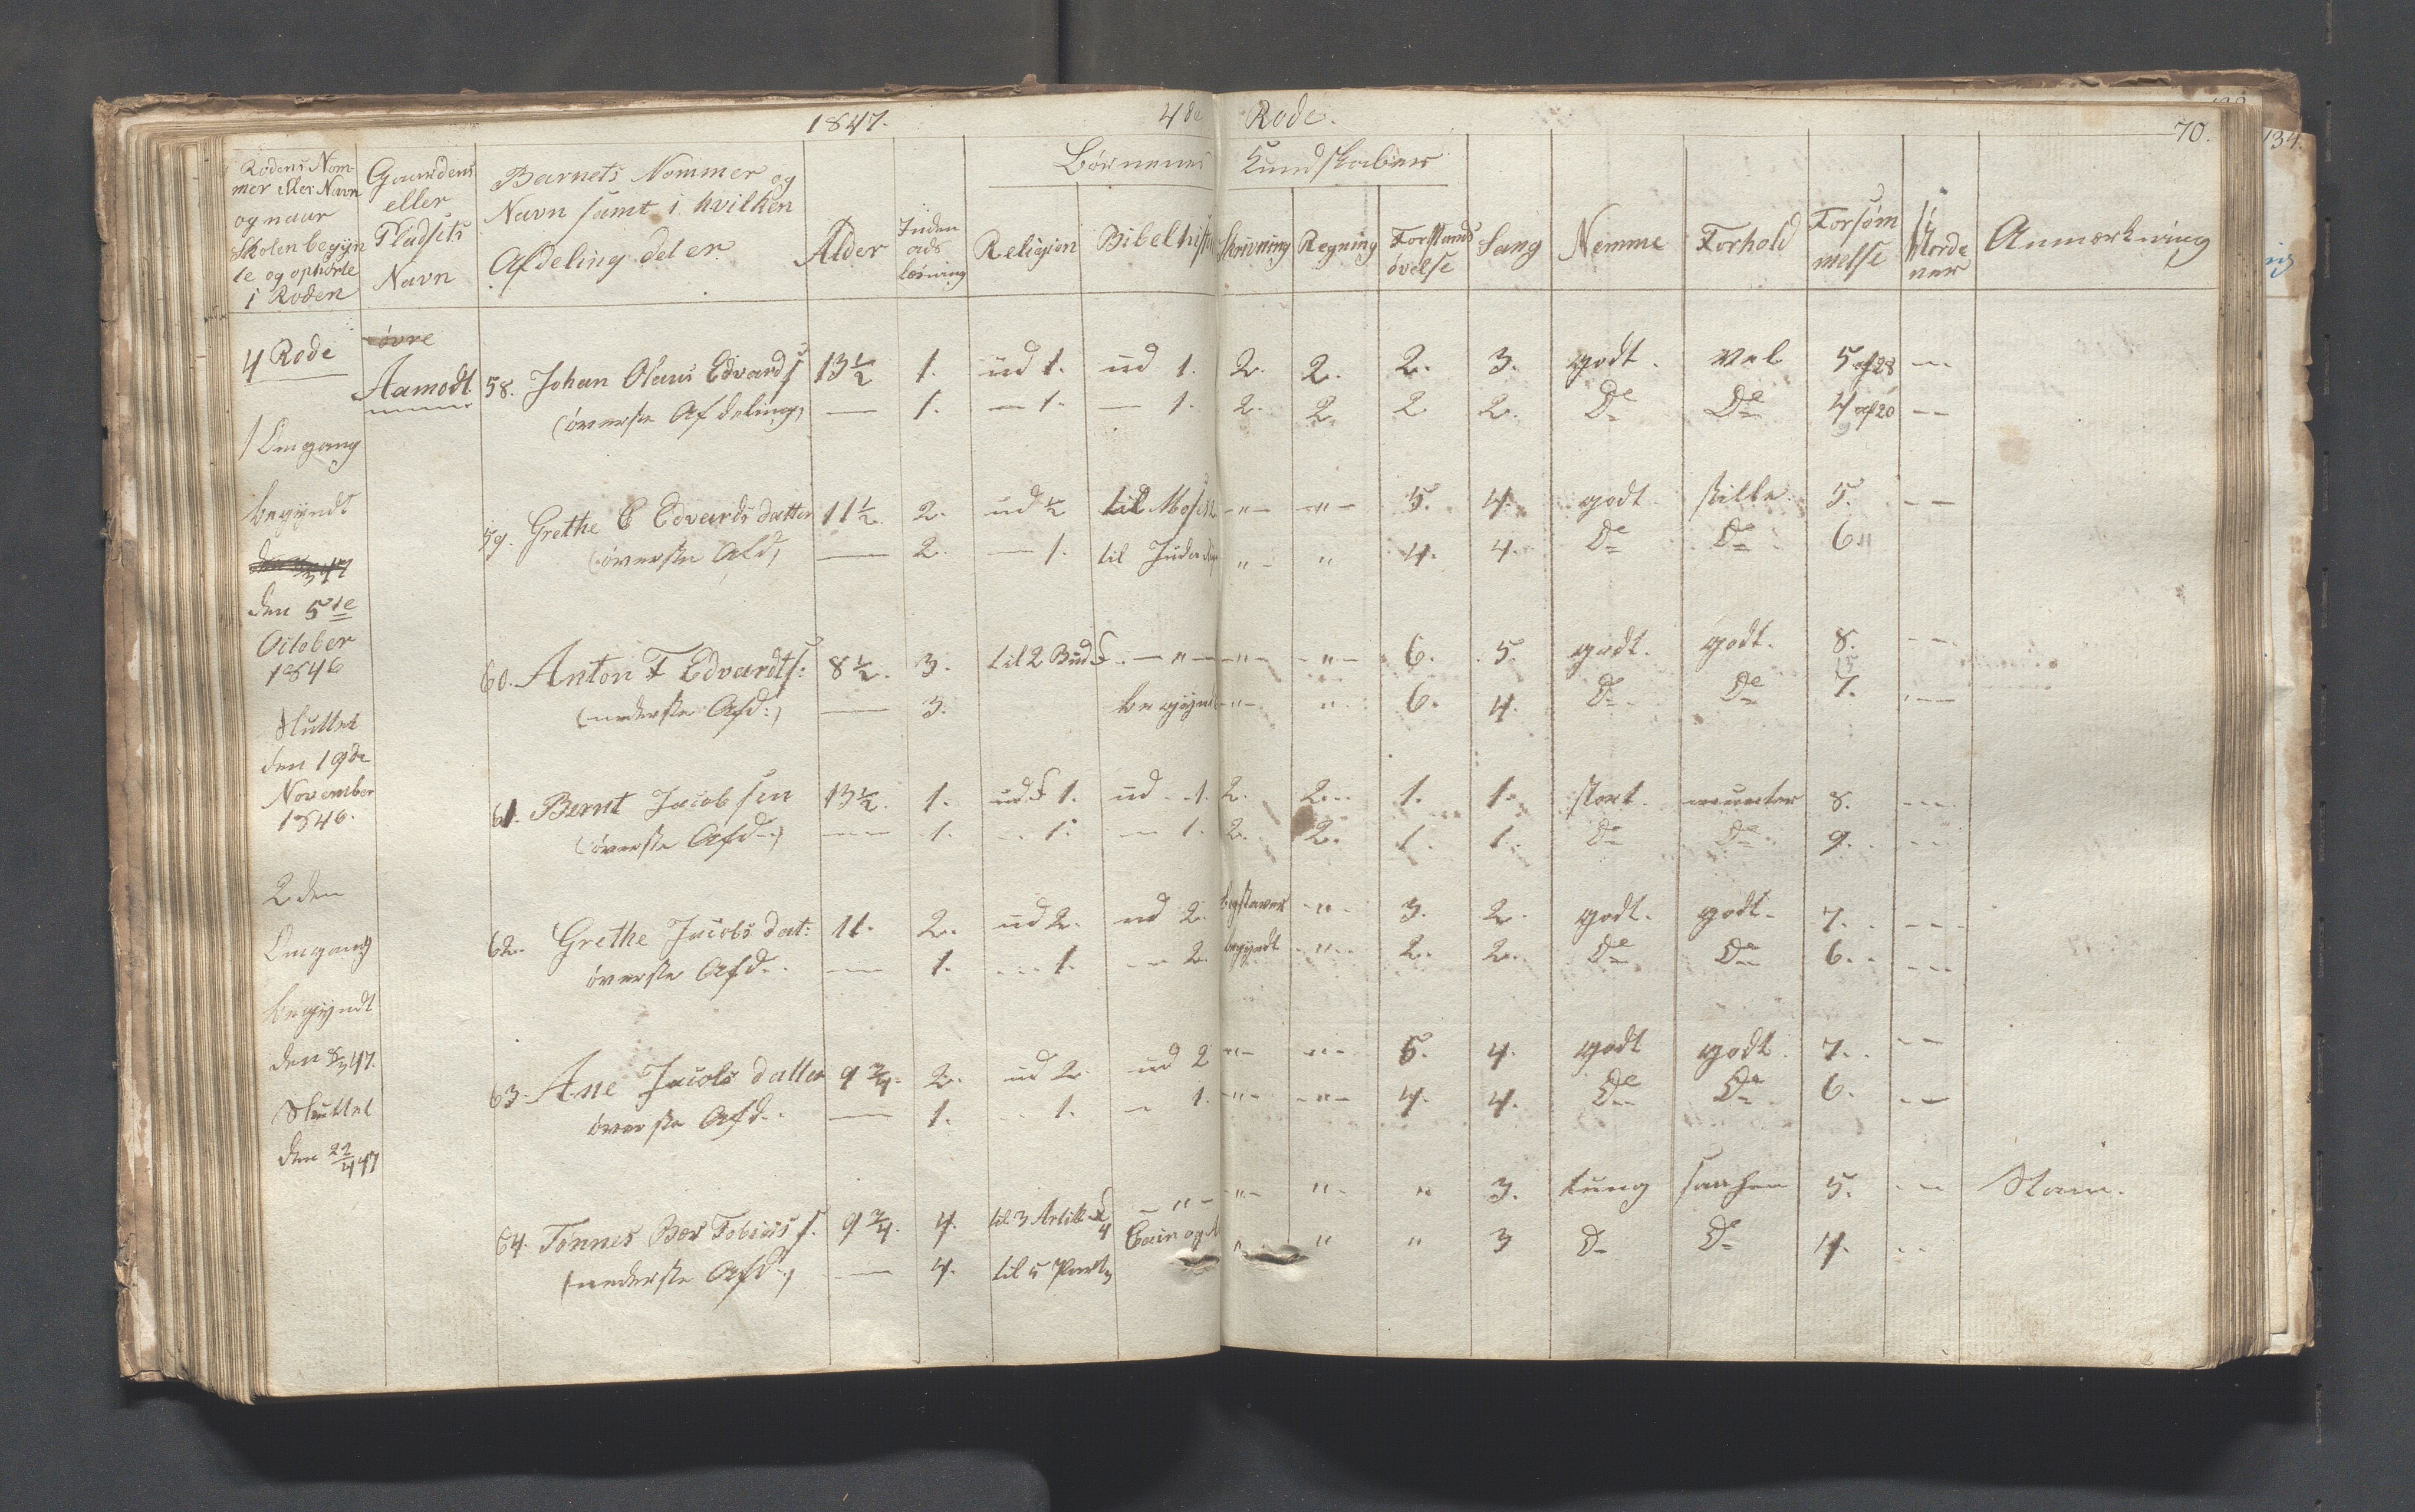 1847. 4de Rode. 70. 134.
Børnenes Kundskaber
Rodens Nom-
mer eller Navn
og naar
Skolen begyn
te og ophørte
i Roden
Gaardens
eller
Pladsets
Navn
Barnets Nommer og
Navn samt i hvilken
Afdeling det er
Alder
Inden
ads
læsning
Religion
Bibelhist
Skrivning
Regning
Forstands
øvelse
Sang
Nemme
Forhold
Forsøm
melse
Anmærkning
4 Rode
øvre
Aamodt
58. Johan Olaus Edvards 13½ 1. ud 1. ud 1. 2. 2. 2. 3. godt. vel 5 af 28 —
(øverste Afdeling) — 1. — 1. — 1. 2. 2. 2 2. De De 4 af 20 —
1 Omgang
begyndt
59. Grethe C Edvardsdatter 11½ 2. ud ½ til Moses — " — — " — 5. 4. godt stille 5. —
(øverste Afd) — 2. — 1. til Juda " " 4. 4. De De 6 "
den 5te
October
1846
60. Anton F Edvardts: 8½. 3. til 2 Bud — " — — " — — " — 6. 5. godt. godt. 8. —
(nederste Afd:) — 3. begynd — " — " 6. 4. De De 7. —
Sluttet
den 19de
November
1846.
61. Bernt Jacobsen 13½. 1. ud 1. ud 1. 2. 2. 1. 1. stort. munter 8. —
(øverste Afd.) — 1. — 1. — 1. 2. 2. 1. 1. De De 9. —
2den
Omgang
62. Grethe Jacobs dat: 11. 2. ud 2. ud 2. bogstaver — " — 3. 2. godt. godt. 7. —
øverste Afd. — 1. — 1. — 2. begyndt — " — 2. 2. De De 6. —
begyndt
den 8/3 47.
63. Ane Jacobs datter 9¾. 2. ud 2. ud 2 — " — — " — 5. 4. godt godt 7. —
øverste Afd. — 1. — 1. — 1. — " — — " — 4. 4. De De 6. —
Sluttet
den 22/4 47
64. Tønnes Tobias s. 9¾. 4. til 3 Artik — " — — " — " " 3. tung 5. —
(nederste Afd.) — 4. til 5 Part Cain og " " " 3 De De 4. —